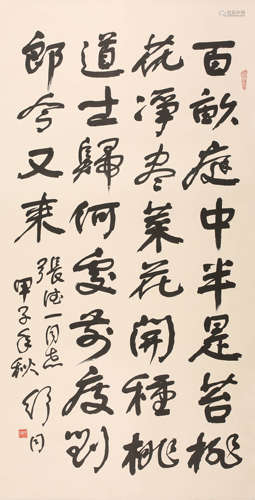 百畝庭中半是苔桃
花凈盡菜花開種桃
道士歸何處前度劉
郎今又来
張波一同志
甲子年秋
舒同